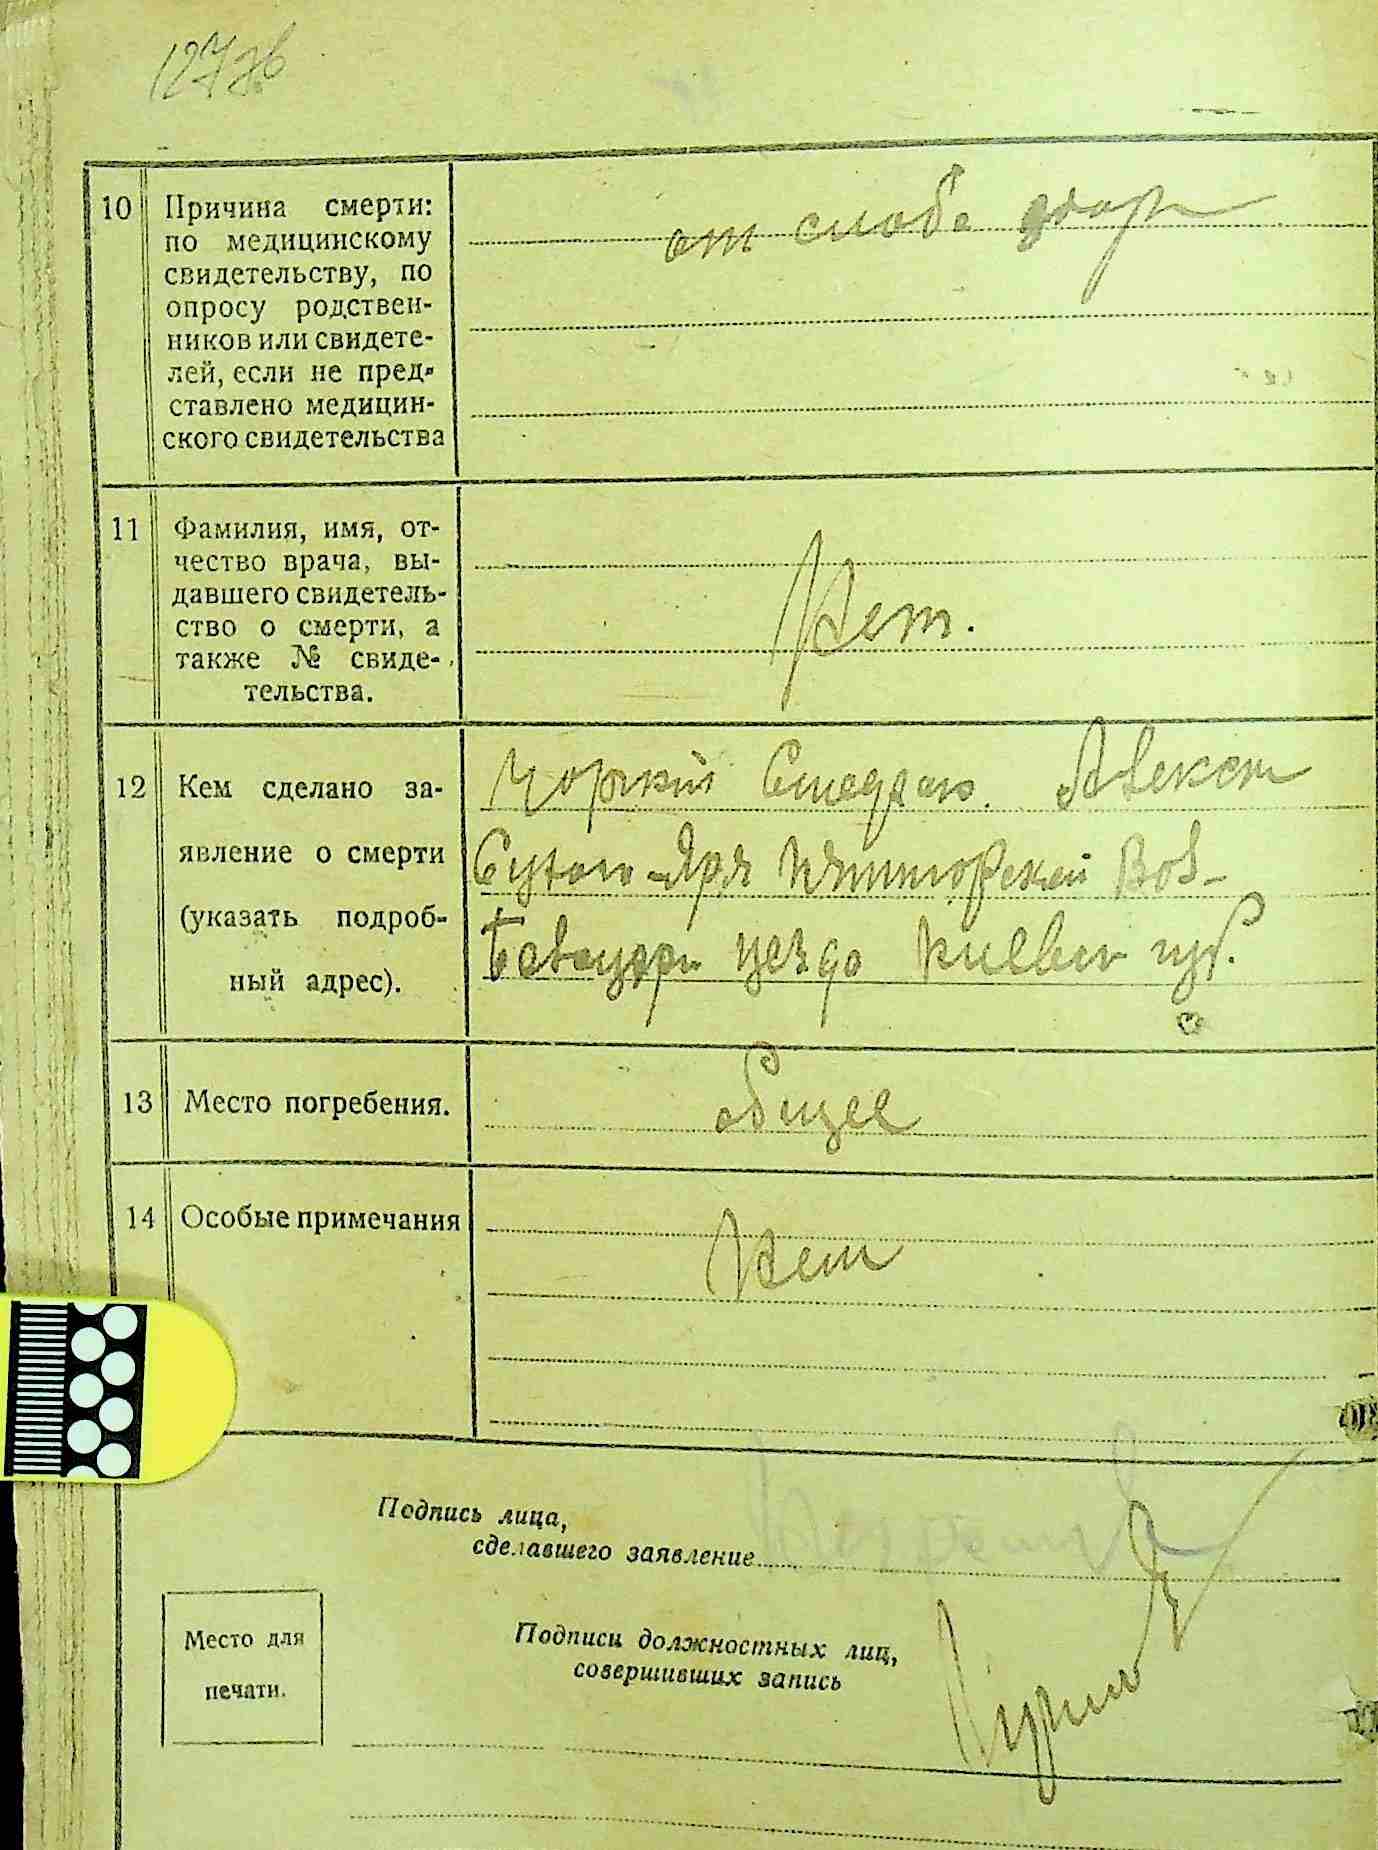 127 зв
10 Причина смерти:
по медицинскому
свидетельству, по
опросу родствен-
ников или свидете-
лей, если не пред-
ставлено медицин-
ского свидетельства
от слаба
11 Фамилия, имя, от-
чество врача, вы-
давшего свидетель-
ство о смерти, а
также № свиде-
тельства.
Нет.
12 Кем сделано за-
явление о смерти
(указать подроб-
ный адрес).
уезда Киевск губ.
13 Место погребения.
общее
14 Особые примечания
Нет
Подпись лица,
сделавшего заявление
Место для
печати.
Подписи должностных лиц,
совершивших запись